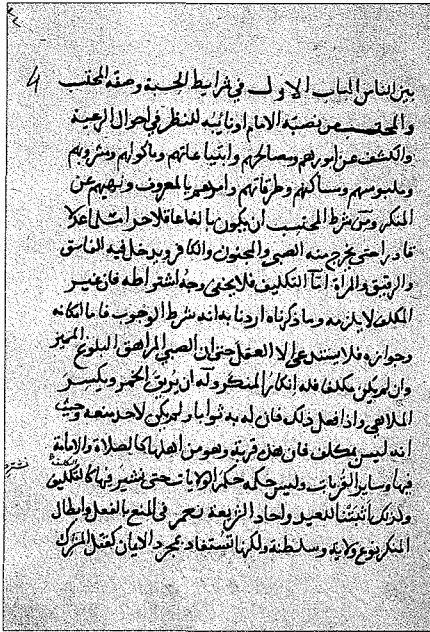 4
بين الناس الباب الاول في شرايط الحسبة وصفة المحتسب
والمحتسب من نصبه الامام او نايبه للنظر في احوال الرعية
والكشف عن امورهم ومصالحهم وابتياعاتهم وماكولهم ومشروبهم
وملبوسهم ومساكنهم وطرقاتهم وامرهم بالمعروف ونهيهم عن
المنكر ومن شرط المحتسب ان يكون بالغا عاقلا حرا مسلما عدلا
قادرا حتى يخرج منه الصبي والمجنون والكافر ويدخل فيه الفاسق
والرقيق والمراة اما التكليف فلا يخفى وجه اشتراطه فان غير
المكلف لا يلزمه وما ذكرناه اردنا به انه شرط الوجوب فاما امكانه
وجوازه فلا يستدعى الا العقل حتى ان الصبي المراهق البلوغ المميز
وان لم يكن مكلفا فله انكار المنكر وله ان يريق الخمر ويكسر
الملاهي واذا فعل ذلك فان له به ثوابا ولم يكن لاحد منعه وحيث
انه ليس بمكلف فان هذه قربة وهو من اهلها كالصلاة والامامة
فيها وساير القربات وليس حكمه حكم الولايات حتى نشير فيها كالتكليف
ولذلك اثبتنا للعبد واحاد الرعية نعم في المنع بالفعل وابطال
المنكر نوع ولاية وسلطنة ولكنها تستفاد بمجرد الايمان كقتل المشرك